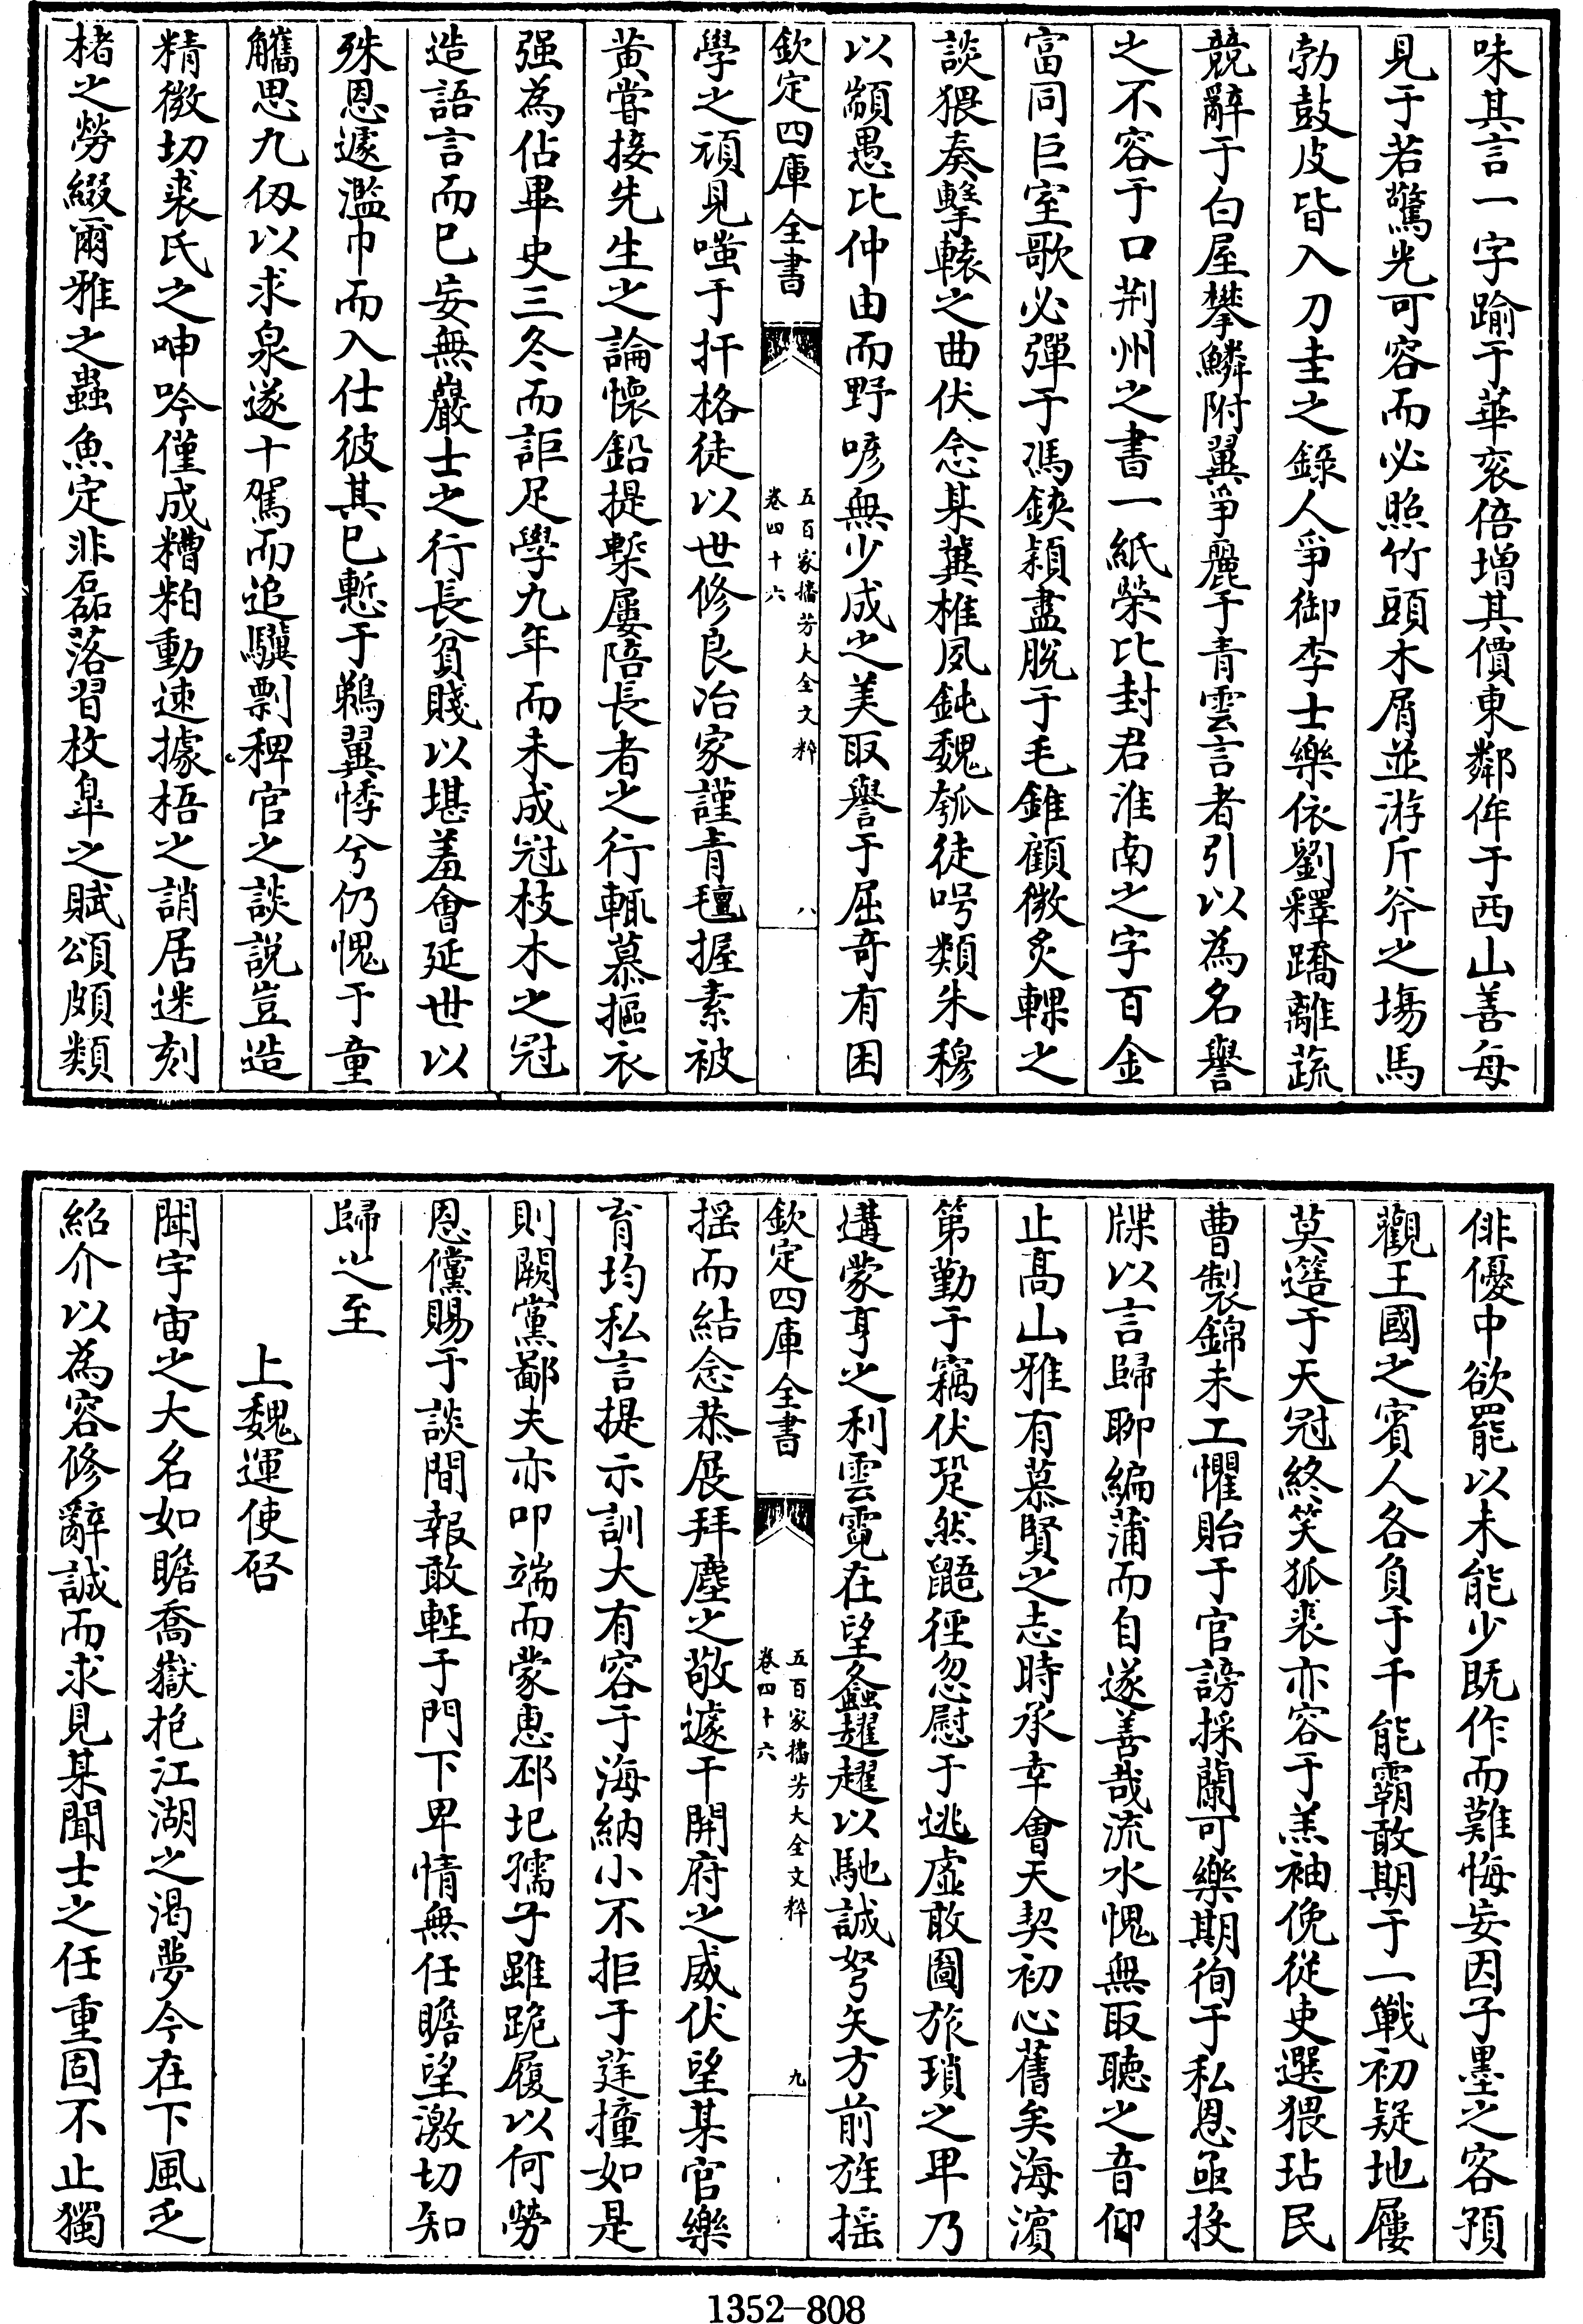 味其言一字踰于華衮倍増其價東鄰侔于西山善每
見于若驚光可容而必照竹頭木屑並游斤斧之塲馬
勃鼓皮皆入刀圭之錄人爭御李士樂依劉釋蹻離蔬
競辭于白屋攀鱗附翼爭麗于青雲言者引以為名譽
之不容于口荆州之書一紙榮比封君淮南之字百金
富同巨室歌必彈于馮鋏穎盡脫于毛錐顧微炙輠之
談猥奏擊轅之曲伏念某冀樵夙鈍魏瓠徒呺類朱穆
以顓愚比仲由而野喭無少成之美取譽于屈奇有困
欽定四庫全書
五百家播芳大全文粹
卷四十六
八
學之頑見嗤于扞格徒以世修良冶家謹青氊握素被
黄嘗接先生之論懷鉛提槧屢陪長者之行輒慕摳衣
强為佔畢史三冬而詎足學九年而未成冠枝木之冠
造語言而已妄無巖士之行長貧賤以堪羞會延世以
殊恩遽濫巾而入仕彼其已慙于鵜翼悸兮仍愧于童
觿思九仭以求泉遂十駕而追驥剽稗官之談説豈造
精微切裘氏之呻吟僅成糟粕動速據梧之誚居迷刻
楮之勞綴爾雅之蟲魚定非磊落習枚臯之賦頌頗類
俳優中欲罷以未能少既作而難悔妄因子墨之客預
觀王國之賓人各負于千能霸敢期于一戰初疑地屨
莫簉于天冠終笑狐裘亦容于羔袖俛從吏選猥玷民
曹製錦未工懼貽于官謗採蘭可樂期徇于私恩亟投
牒以言歸聊編蒲而自遂善哉流水愧無取聽之音仰
止高山雅有慕賢之志時承幸會天契初心舊矣海濵
第勤于竊伏跫然鼯徑忽慰于逃虛敢圖旅瑣之卑乃
遘蒙亨之利雲霓在望螽趯趯以馳誠弩矢方前旌揺
欽定四庫全書
五百家播芳大全文粹
卷四十六
九
揺而結念恭展拜塵之敬遽干開府之威伏望某官樂
育均私言提示訓大有容于海納小不拒于莛撞如是
則闕黨鄙夫亦叩端而蒙惠邳圯孺子雖跪履以何勞
恩儻賜于談間報敢輕于門下卑情無任瞻望激切知
歸之至
上魏運使啓
聞宇宙之大名如瞻喬嶽抱江湖之渴夢今在下風乏
紹介以為容修辭誠而求見某聞士之任重固不止獨
1352-808